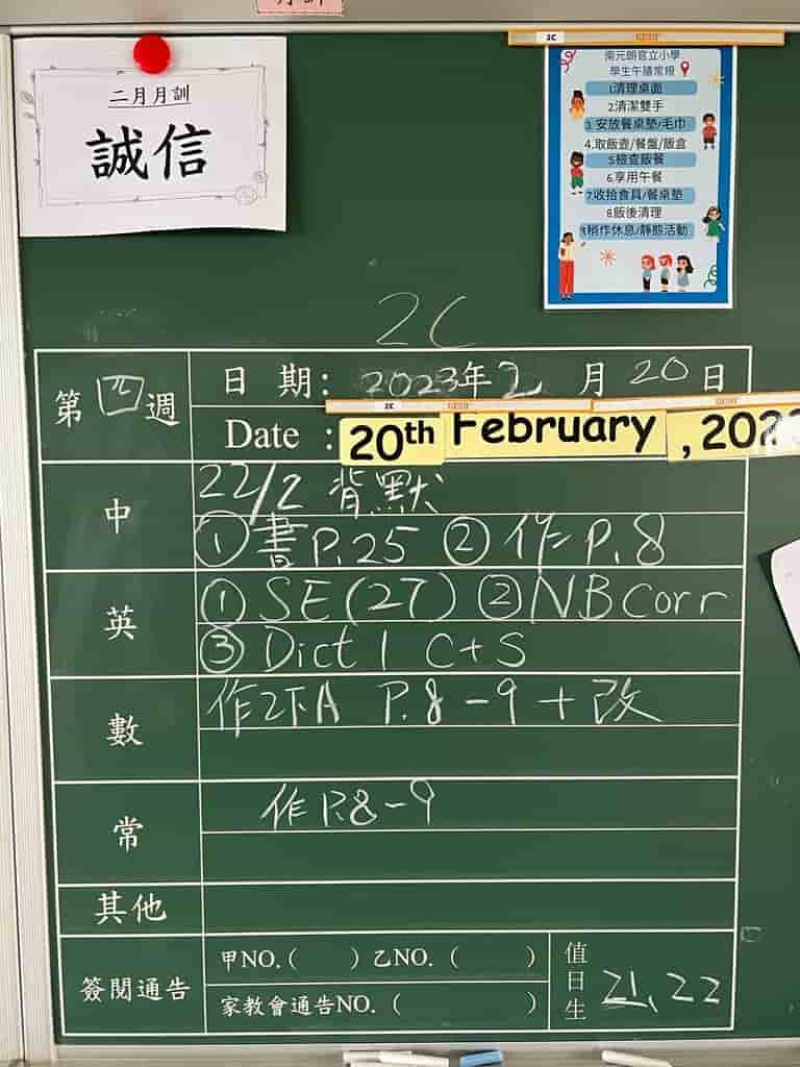 二月月訓
誠信
1C
南元朗官立小學
學生午膳常規
1.清理桌面
2.清潔雙手
3.安放餐桌墊/毛巾
4.取飯壺/餐盤/飯盒
5.檢查飯餐
6.享用午餐
7.收拾食具/餐桌墊
8.飯後清理
9.稍作休息/靜態活動
2C
第四週
日期：2023年2月20日
Date：20th February, 202
中
22/2 背默
①書P.25 ②作二P.8
英
①SE(27) ②NB Corr
③Dict 1 C+S
數
作2下A P.8-9+改
常
作P.8-9
其他
簽閱通告
甲NO.( ) 乙NO.( )
家教會通告NO.( )
值日生 21、22